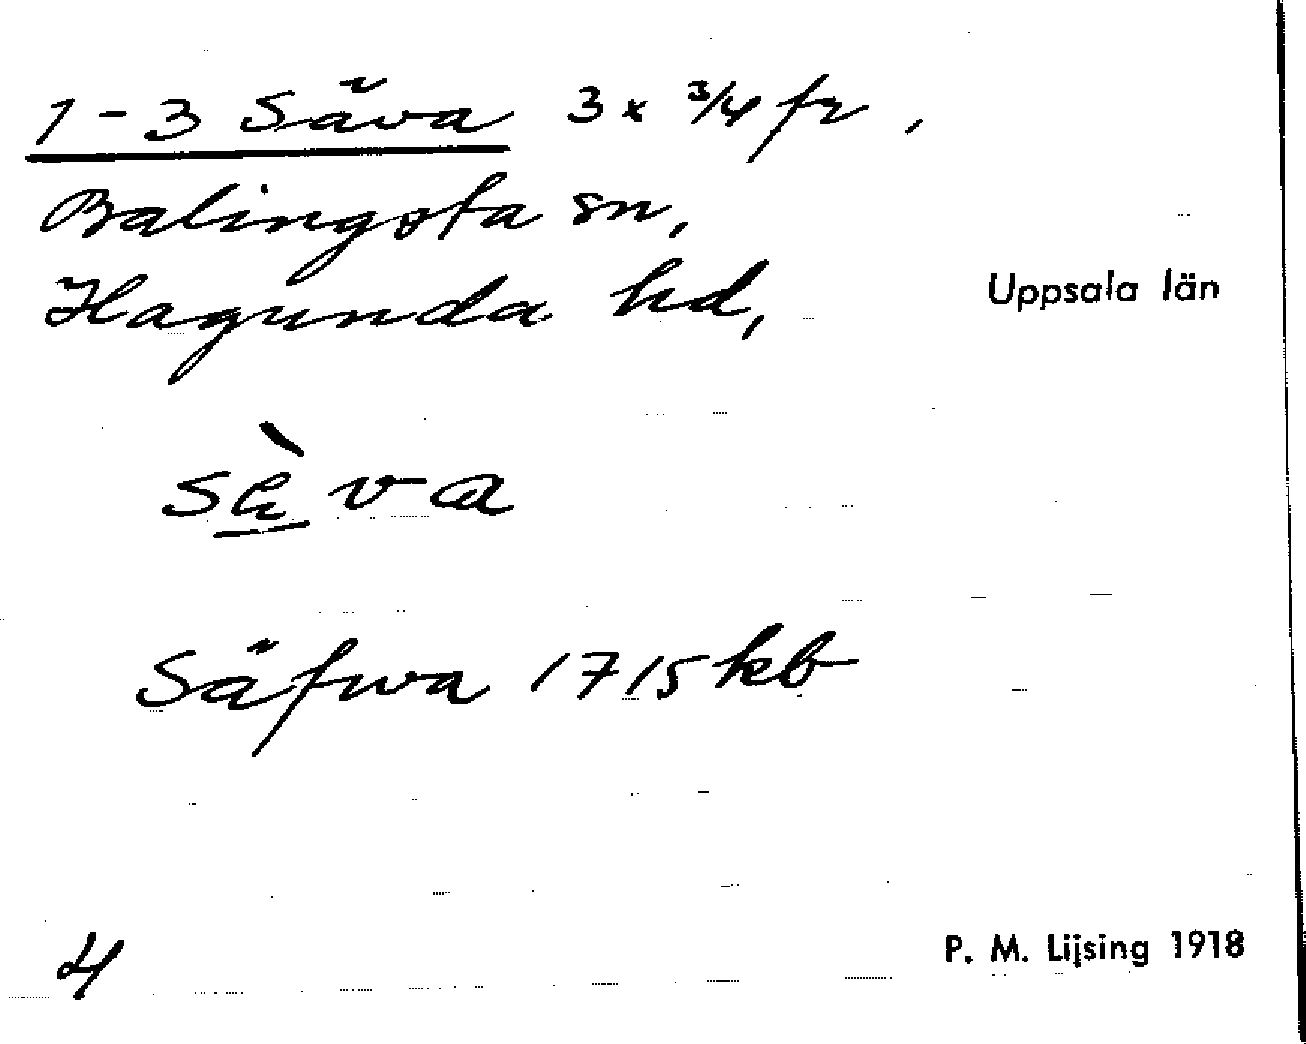 1-3 Säva 3 x 3/4 fr,
Balingsta sn,
Hagunda hd,
Uppsala län
sä̀va
Säfwa 1715 kb
4
P. M. Lijsing 1918